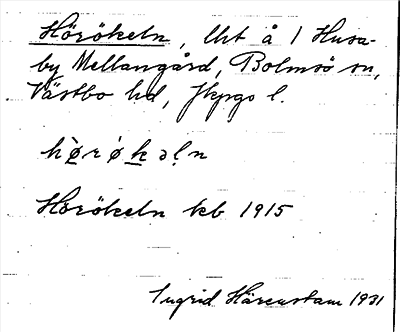 Hörökeln, lht å 1 Husa-
by Mellangård, Bolmsö sn,
Västbo hd, Jkpgs l.
hø̀rǿkəḷn
Hörökeln kb 1915
Ingrid Härenstam 1931